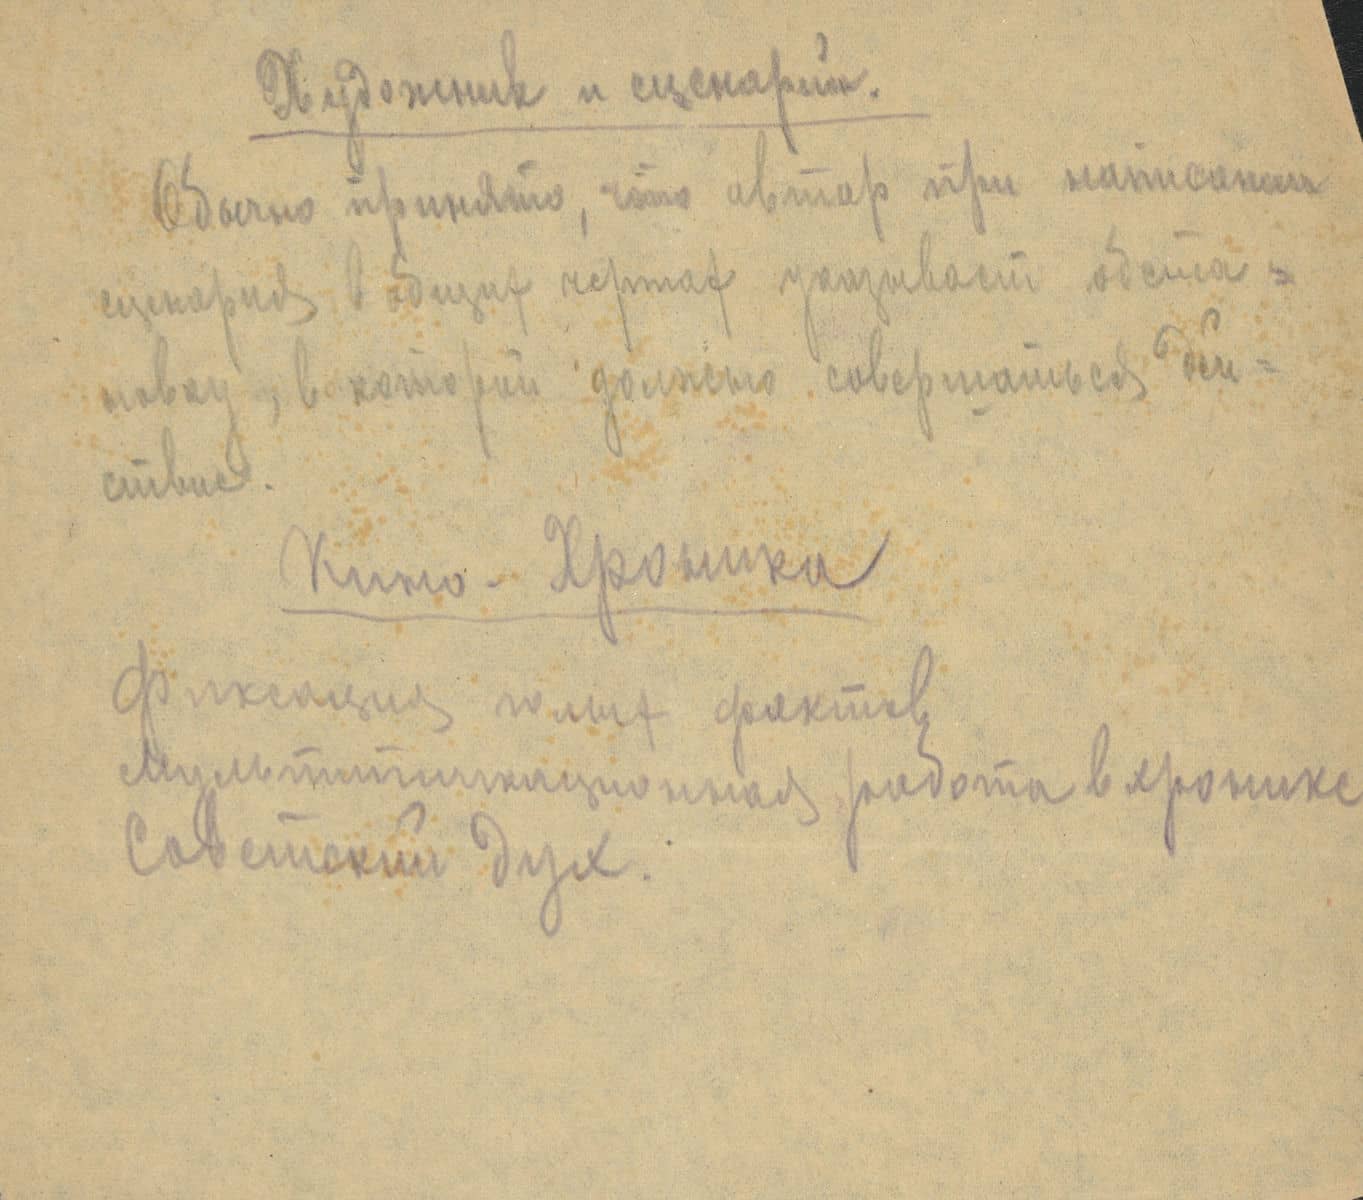 Художник и сценарий.
Обычно принято, что автор при написании
сценария в общих чертах указывает обста=
новку, в которой должно совершаться дей=
ствие.
Кино-Хроника
Фиксация голых фактов
Мультипликационная работа в хронике
Советский дух.